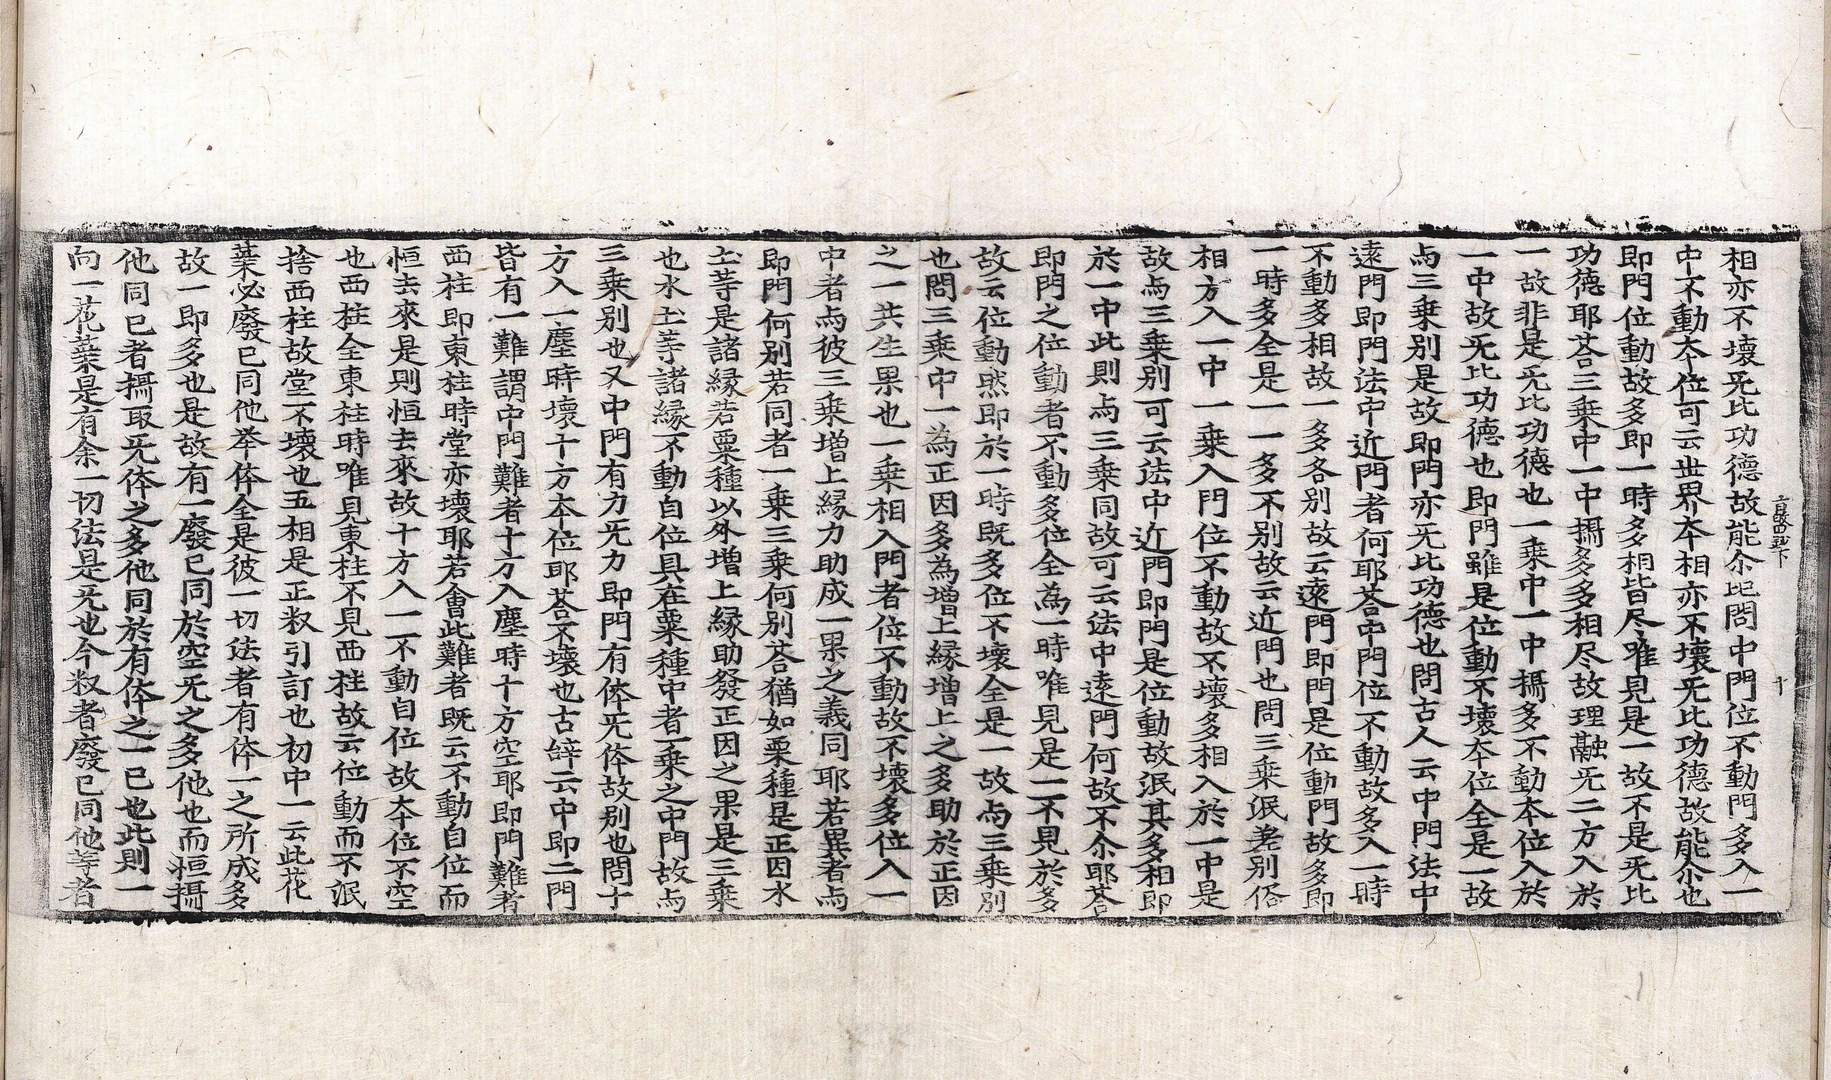 相亦不壞旡比功德故能尒也問中門位不動門多入一
中不動本位可云世界本相亦不壞旡比功德故能尒也
即門位動故多即一時多相皆尽唯見是一故不是旡比
功德耶荅三乗中一中攝多多相尽故理融旡二方入於
一故非是旡比功德也一乗中一中攝多不動本位入於
一中故旡比功德也即門雖是位動不壞本位全是一故
与三乗別是故即門亦旡比功德也問古人云中門法中
遠門即門法中近門者何耶荅中門位不動故多入一時
不動多相故一多各別故云遠門即門是位動門故多即
一時多全是一一多不別故云近門也問三乗泯差別俗
相方入一中一乗入門位不動故不壞多相入於一中是
故与三乗別可云法中近門即門是位動故泯其多相即
於一中此則与三乗同故可云法中遠門何故不尒耶荅
即門之位動者不動多位全為一時唯見是一不見於多
故云位動然即於一時既多位不壞全是一故与三乗別
也問三乗中一為正因多為增上緣增上之多助於正因
之一共生果也一乗相入門者位不動故不壞多位入一
中者与彼三乗增上緣力助成一果之義同耶若異者与
即門何別若同者一乗三乗何別荅猶如粟種是正因水
土等是諸緣若粟種以外增上緣助發正因之果是三乗
也水土等諸緣不動自位具在粟種中者一乗之中門故与
三乗別也又中門有力旡力即門有体旡体故別也問十
方入一塵時壞十方本位耶荅不壞也古辞云中即二門
皆有一難謂中門難者十方入塵時十方空耶即門難者
西柱即東柱時堂亦壞耶若會此難者既云不動自位而
恒去來是則恒去來故十方入一不動自位故本位不空
也西柱全東柱時唯見東柱不見西柱故云位動而不泯
捨西柱故堂不壞也五相是正敎引訂也初中一云此花
葉必廢已同他举体全是彼一切法者有体一之所成多
故一即多也是故有一廢已同於空旡之多他也而桓攝
他同已者攝取旡体之多他同於有体之一已也此則一
向一花葉是有余一切法是旡也今敎者廢已同他等者
十